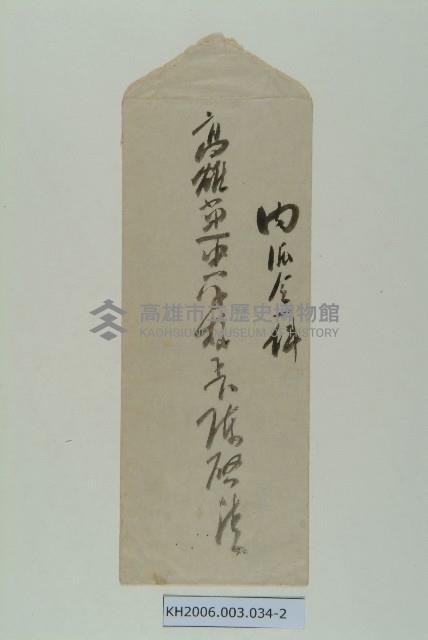 內派令
高雄第一中學校長陳啟清
高雄市立歷史博物館
KAOHSIUNG MUSEUM OF HISTORY
KH2006.003.034-2